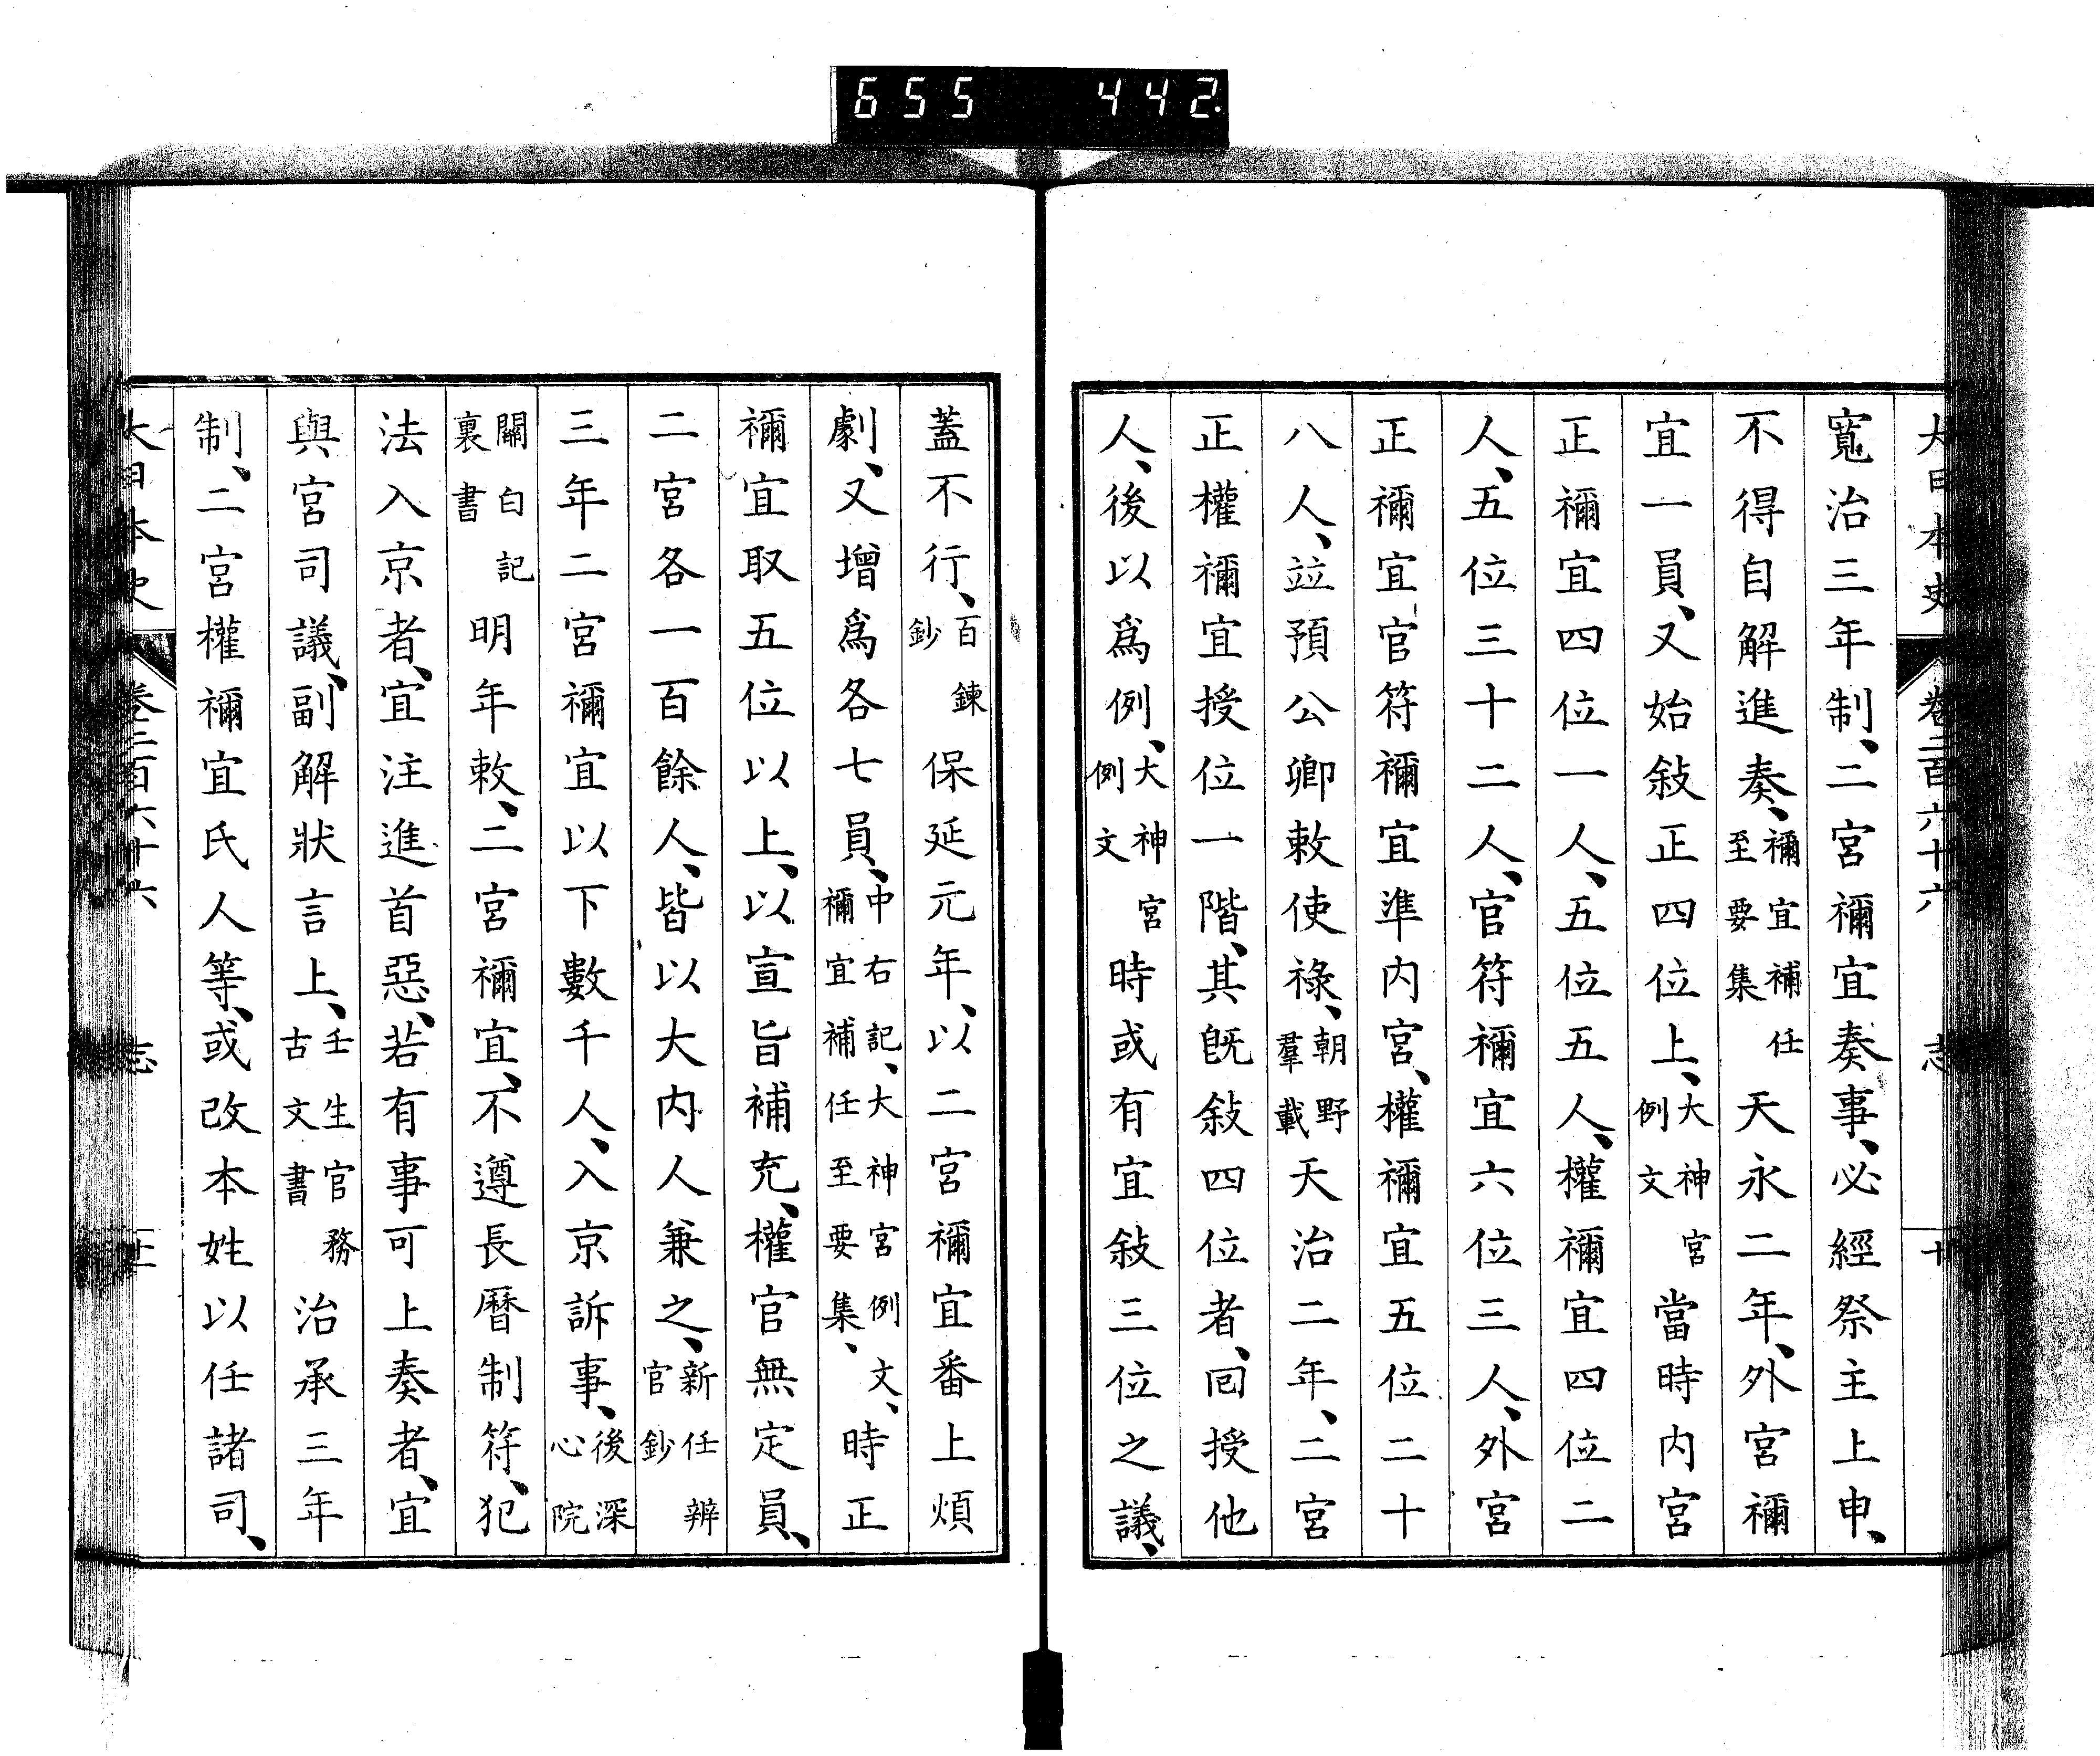 655 442
大日本史 卷二百六十六 志 十
寬治三年制、二宮禰宜奏事、必經祭主上申、
不得自解進奏、禰宜補任至要集天永二年、外宮禰
宜一員、又始敍正四位上、大神宮例文當時內宮
正禰宜四位一人、五位五人、權禰宜四位二
人、五位三十二人、官符禰宜六位三人、外宮
正禰宜官符禰宜準內宮、權禰宜五位二十
八人、竝預公卿敕使祿、朝野羣載天治二年、二宮
正權禰宜授位一階、其旣敍四位者、回授他
人、後以爲例、大神宮例文時或有宜敍三位之議、
蓋不行、百鍊鈔保延元年、以二宮禰宜番上煩
劇、又增爲各七員、中右記、大神宮例文、禰宜補任至要集、時正
禰宜取五位以上、以宣旨補充、權官無定員、
二宮各一百餘人、皆以大內人兼之、新任辨官鈔
三年二宮禰宜以下數千人、入京訴事、後深心院
關白記裏書明年敕、二宮禰宜、不遵長曆制符、犯
法入京者、宜注進首惡、若有事可上奏者、宜
與宮司議、副解狀言上、壬生官務古文書治承三年
制、二宮權禰宜氏人等、或改本姓以任諸司、
大日本史 卷二百六十六 志